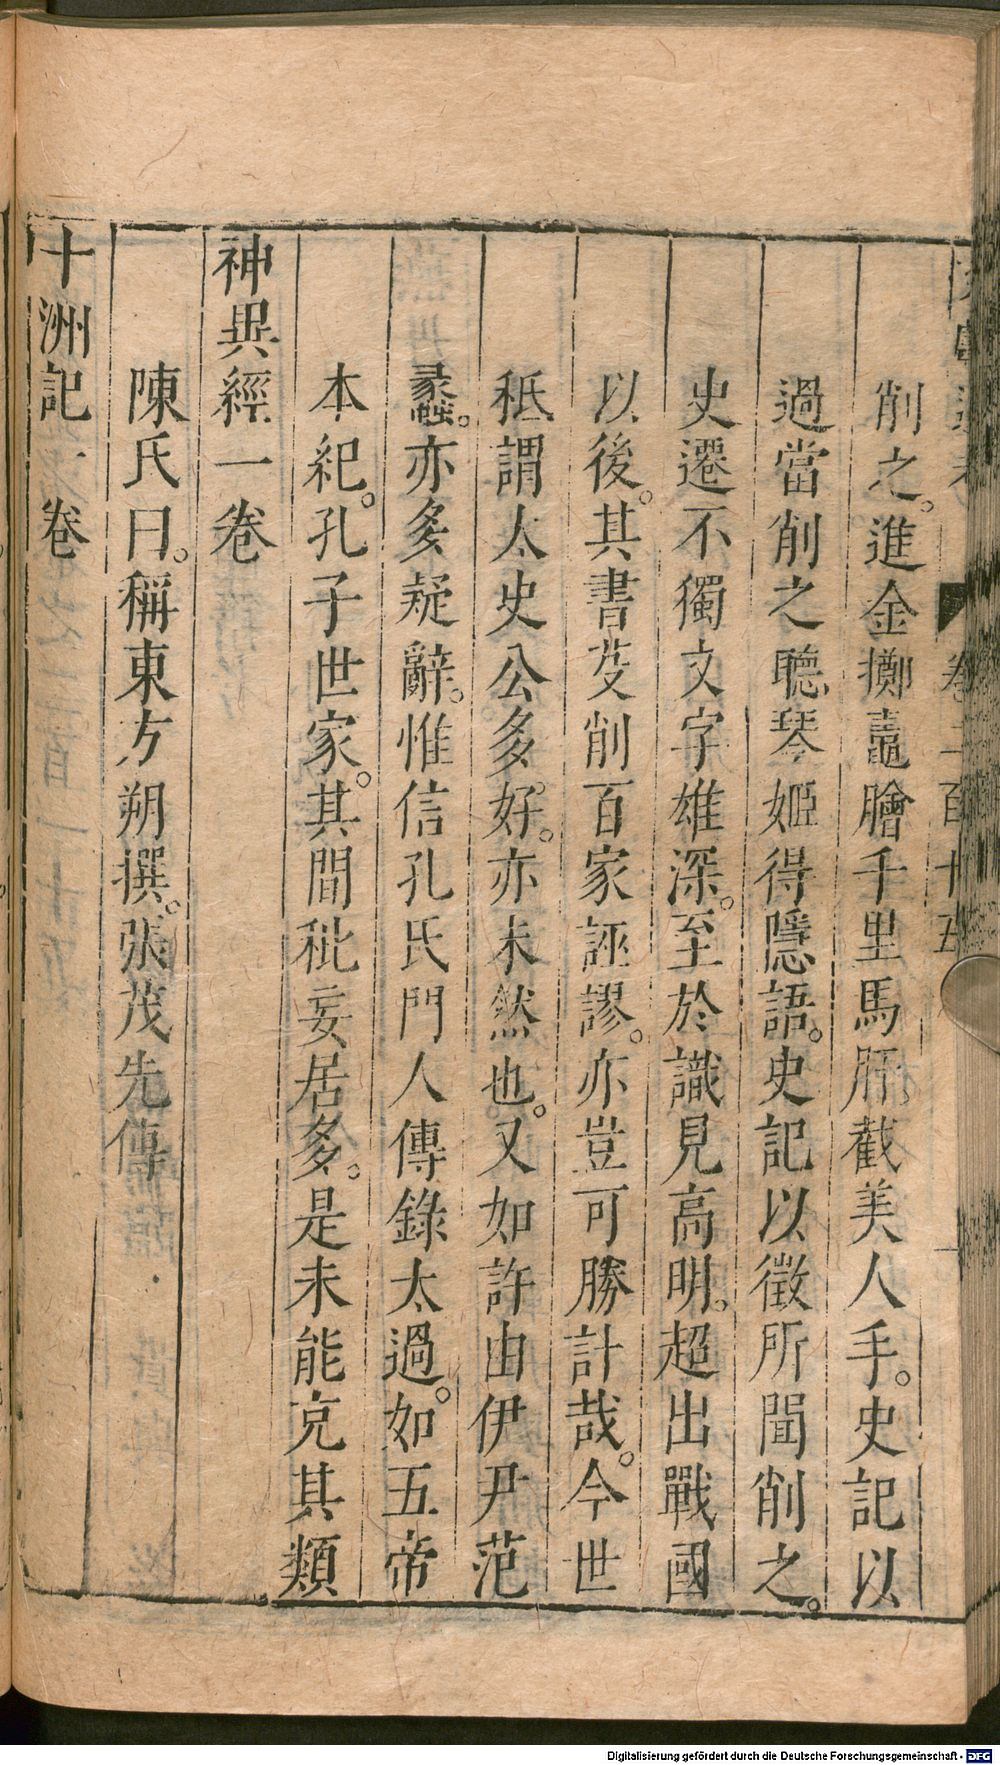 削之。進金擲黿膾千里馬肝截美人手。史記以
過當削之聽琴姬得隱語。史記以徵所聞削之。
史遷不獨文字雄深。至於識見高明。超出戰國
以後。其書芟削百家誣謬。亦豈可勝計哉。今世
秪謂太史公多好。亦未然也。又如許由伊尹范
蠡。亦多疑辭。惟信孔氏門人傳錄太過。如五帝
本紀。孔子世家。其間秕妄居多。是未能克其類
神異經一卷
陳氏曰。稱東方朔撰。張茂先傳
十洲記一卷
卷二百十五
Digitalisierung gefördert durch die Deutsche Forschungsgemeinschaft - DFG